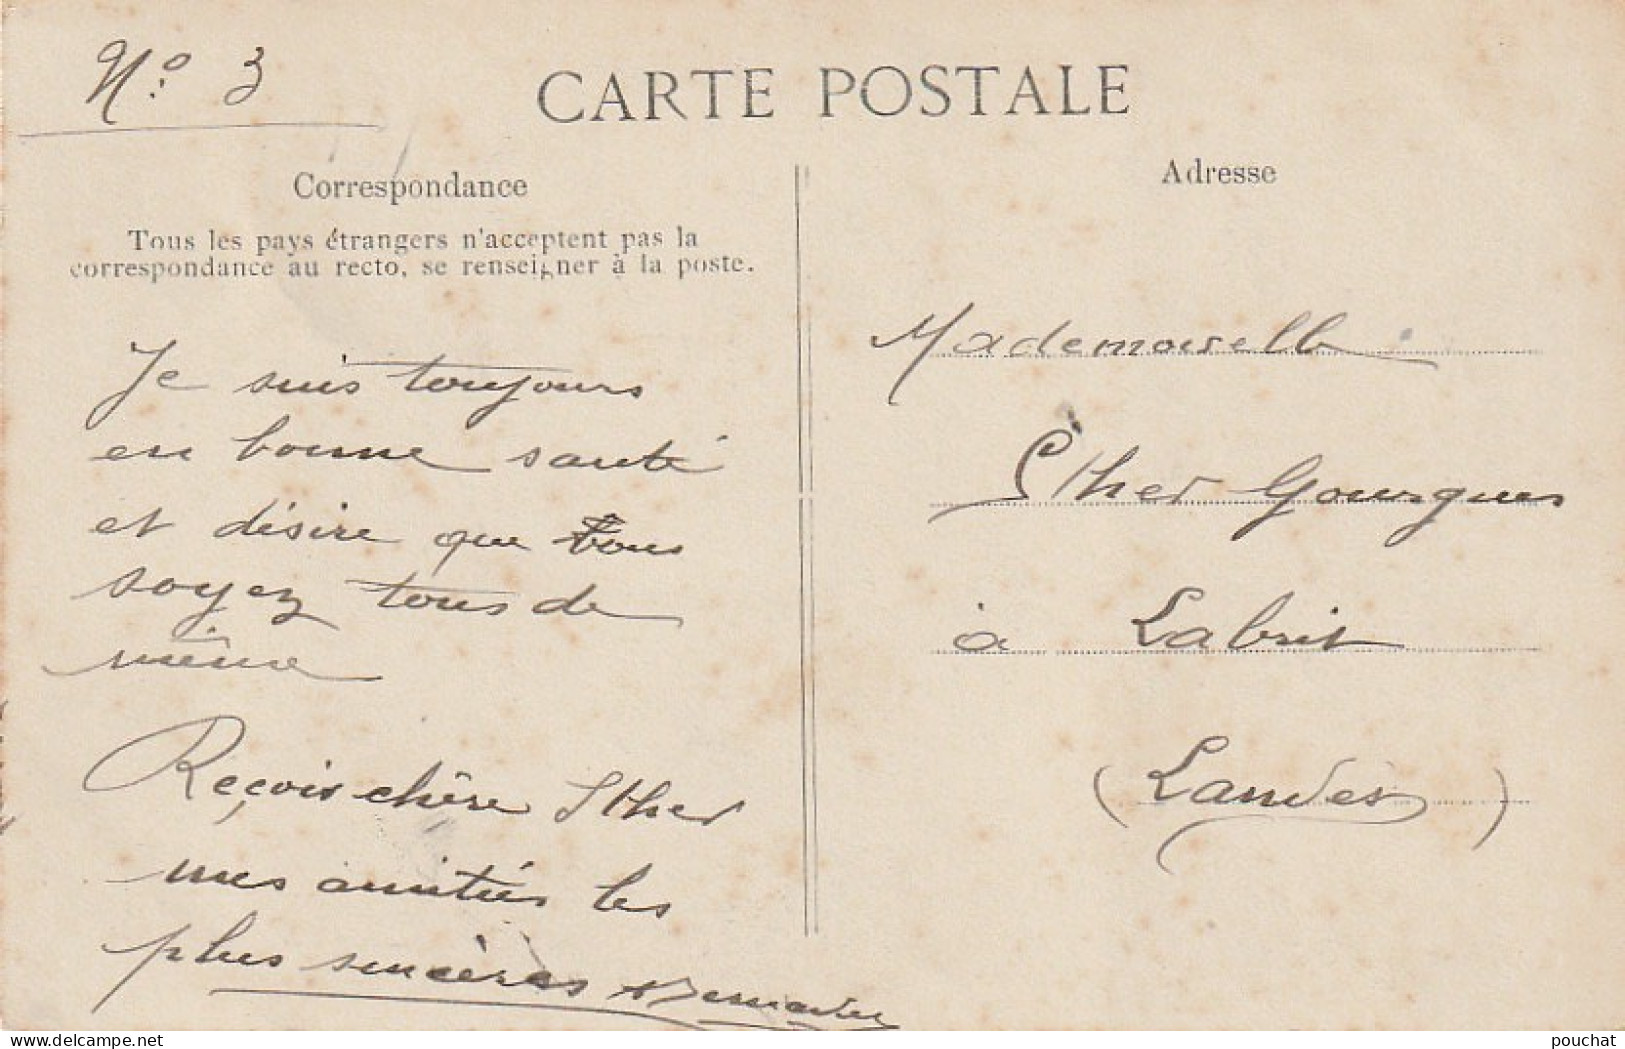 N.º 3
CARTE POSTALE
Correspondance
Tous les pays étrangers n'acceptent pas la
correspondance au recto, se renseigner à la poste.
Je suis toujours
en bonne santé
et désire que vous
soyez tous de
même
Reçois chère Esther
mes amitiés les
plus sincères
Adresse
Mademoiselle
Esther Gourgues
à Labrit
(Landes)
www.delcampe.net
pouchat